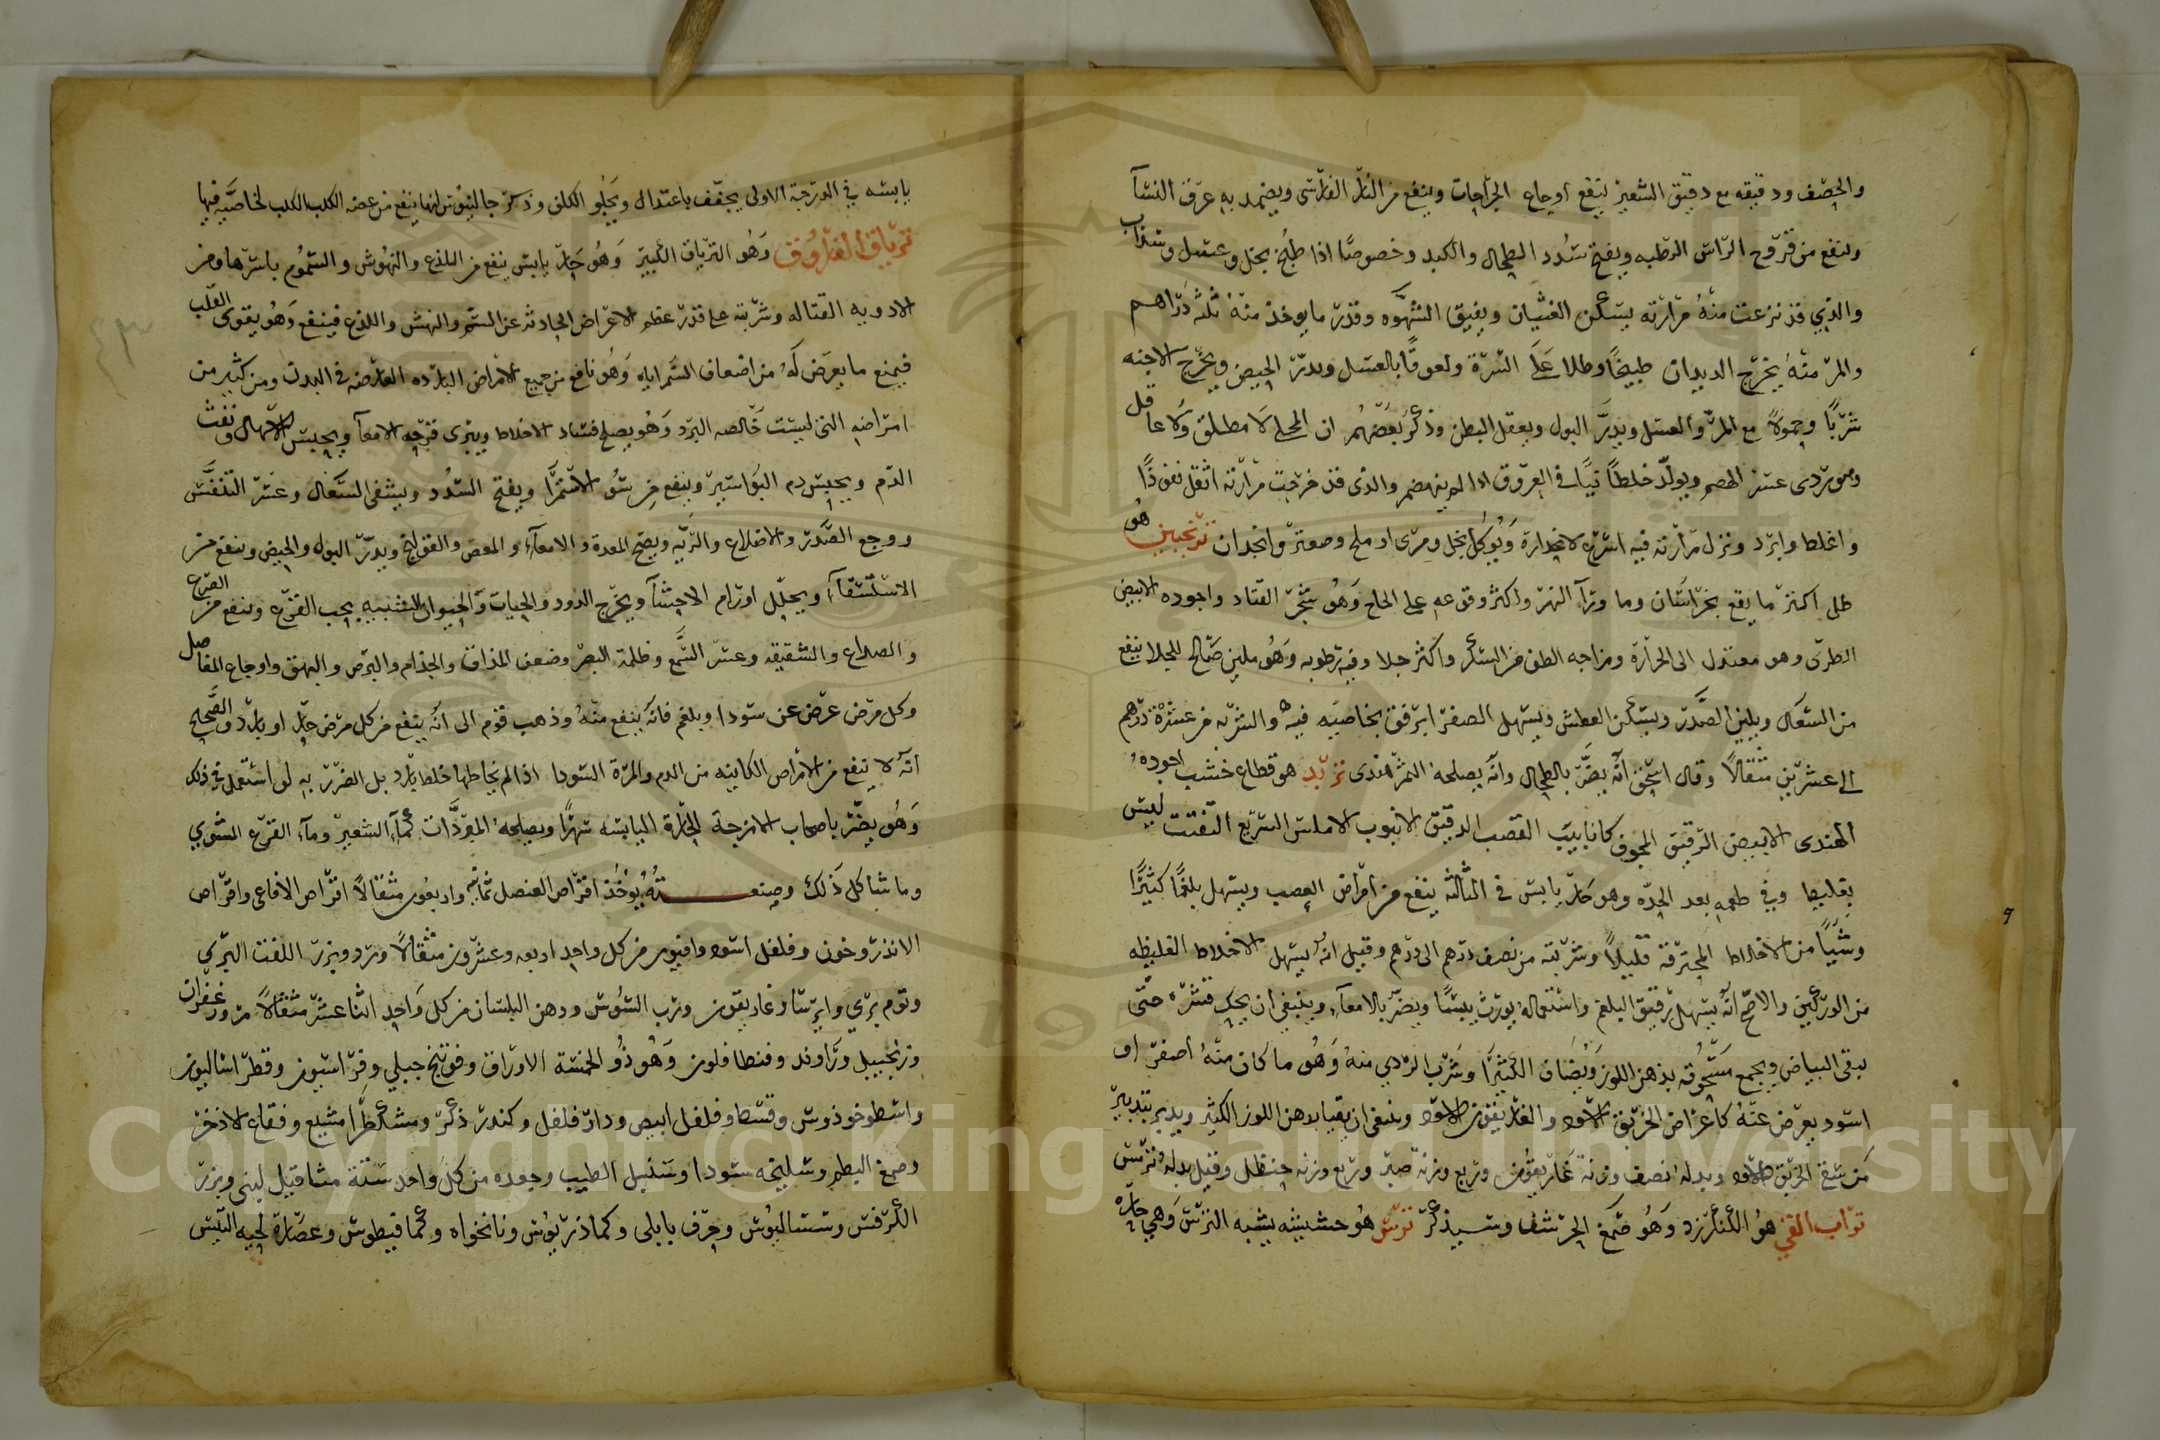 والحصف ودقيقه مع دقيق الشعير ينفع اوجاع الجراحات وينفع من النار الفارسى ويضمد به عرق النسآ
وينفع من قروح الراس الرطبه ويفتح سدد الطحال والكبد وخصوصًا اذا طبخ بخل وعسل وسذاب
والذي قد نزعت منه مرارته يسكن الغثيان ويفيق الشهوه وقدر ما يوخذ منه ثلثه دراهم
والمر منه يخرج الديدان طبيخًا وطلا على السرة ولعوقًا بالعسل ويدرّ الحيض ويخرج الاجنه
شربًا وحمولاً مع المر والعسل ويدر البول ويعقل البطن وذكر بعضهم ان المحلى لا مطلق ولا عاقل
وهو ردى عسر الهضم ويولد خلطًا نيًا في العروق اذا لم ينهضم والذى قد خرجت مرارته اثقل نفوذًا
واغلظ وابرد ونزل مرارته فيه اسرع لانحداره ويوكل بخل ومرى او ملح وصعتر وانجدان ترنجبين هو
طل اكثر ما يقع بخراسان وما ورآ النهر واكثر وقوعه على الحاج وهو شجر القتاد واجوده الابيض
الطرى وهو معتدل الى الحرارة ومزاجه الطف من السكر واكثر جلا وفيه رطوبه وهو ملين صالح للجلا ينفع
من السعال ويلين الصدر ويسكن العطش ويسهل الصفرا برفق بخاصيه فيه والشربه من عشرة درهم
الى عشرين مثقالاً وقال اسحق انه يضر بالطحال وانه يصلحه التمر هندى تربد هو قطاع خشب اجوده
الهندى الابيض الرقيق المجوف كانابيب القصب الدقيق الانبوب الاملس السريع التفتت ليس
بغليظ وفي طعمه بعد الحدّه وهو حار يابس في الثالثه ينفع من امراض العصب ويسهل بلغمًا كثيرًا
وشيًا من الاخلاط المحترقة قليلاً وشربته من نصف درهم الى درهم وقيل انه يسهل الاخلاط الغليظه
من الوركين والاصح انه يسهل رقيق البلغم واستعماله يورث يبسًا ويضر بالامعآء وينبغي ان يحك قشره حتى
يبقى البياض ويجمع مسحوقه بدهن اللوز ويضاف الكثيرا وشرب الردي منه وهو ما كان منه اصفر او
اسود يعرض عنه كاعراض الخربق الاسود والغاريقون الاسود وينبغي ان يقيا بدهن اللوز الكثير ويدبر بتدبير
من سقى الخربق الاسود وبدله نصف وزنه غاريقون وربع وزنه صبر وربع وزنه حنظل وقيل بدله وترس
تراب القي هو الكنكرزد وهو صمغ الحرشف وسيذكر ترس هو حشيشه يشبه الترس وهي حاره
يابسه في الدرجة الاولى يجفف باعتدال ويجلو الكلف وذكر جالينوس انها ينفع من عضه الكلب الكلب لخاصيه فيها
ترياق الفاروق وهو الترياق الكبير وهو حار يابس ينفع من اللذع والنهوش والسموم باسرها ومن
الادويه القتاله وشربته على قدر عظم الاعراض الحادثه عن السم والنهش واللذع فينفع وهو يقوى القلب
فيمنع ما يعرض له من اضعاف السم اياه وهو نافع من جميع الامراض البارده العارضه في البدن ومن كثير من
امراضه التى ليست خالصه البرد وهو يصلح فساد الاخلاط ويبرى قرحه الامعآ ويحبس الاسهال ونفث
الدم ويحبس دم البواسير وينفع من سو الاستمرا ويفتح السدد ويشفى السعال وعسر التنفس
ووجع الصدر والاضلاع والريه ويصح المعدة والامعآء والمغص والقولنج ويدرّ البول والحيض وينفع من
الاستسقآء ويحلل اورام الاحشآ ويخرج الدود والحيات والحيوان الشبيه بحب القرع وينفع من الصرع
والصداع والشقيقه وعسر السمع وظلمة البصر وضعف المذاق والجذام والبرص والبهق واوجاع المفاصل
وكل مرض عرض عن سودا وبلغم فانه ينفع منه وذهب قوم الى انه ينفع من كل مرض حار او بارد والصحيح
انه لا ينفع من الامراض الكاينه من الدم والمرة السودا اذا لم يخاطها خلط بارد بل الضرر به لو استعمل في ذلك
وهو يضر باصحاب الامزجة الحارة اليابسه شهرًا ويصلحه المبردات كمآء الشعير ومآء القرع المشوي
وما شاكل ذلك وصنعته يوخذ اقراص العنصل ثمانيه واربعون مثقالاً اقراص الافاعى واقراص
الاندروخون وفلفل اسود وافيون من كل واحد اربعه وعشرون مثقالاً ورد وبزر اللفت البرى
وثوم بري وايرسا وغاريقون ورب السوس ودهن البلسان من كل واحد اثنا عشر مثقالاً مر وزعفران
وزنجبيل وراوند وفنطافلون وهو ذو الخمسة الاوراق وفوتنج جبلي وفراسيون وفطراساليون
واسطوخوذوس وقسط وفلفل ابيض ودار فلفل وكندر ذكر ومشكطرامشيع وفقاح الاذخر
وصمغ البطم وسليخه سودا وسنبل الطيب وجعده من كل واحد ستة مثاقيل لبنى وبزر
الكرفس وسساليوس وحرف بابلى وكماذريوس ونانخواه وكمافيطوس وعصارة لحيه التيس